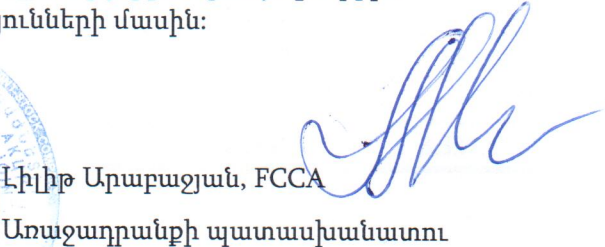 մասին:
Լիլիթ Արաբաջյան, FCCA
Առաջադրանքի պատասխանատու